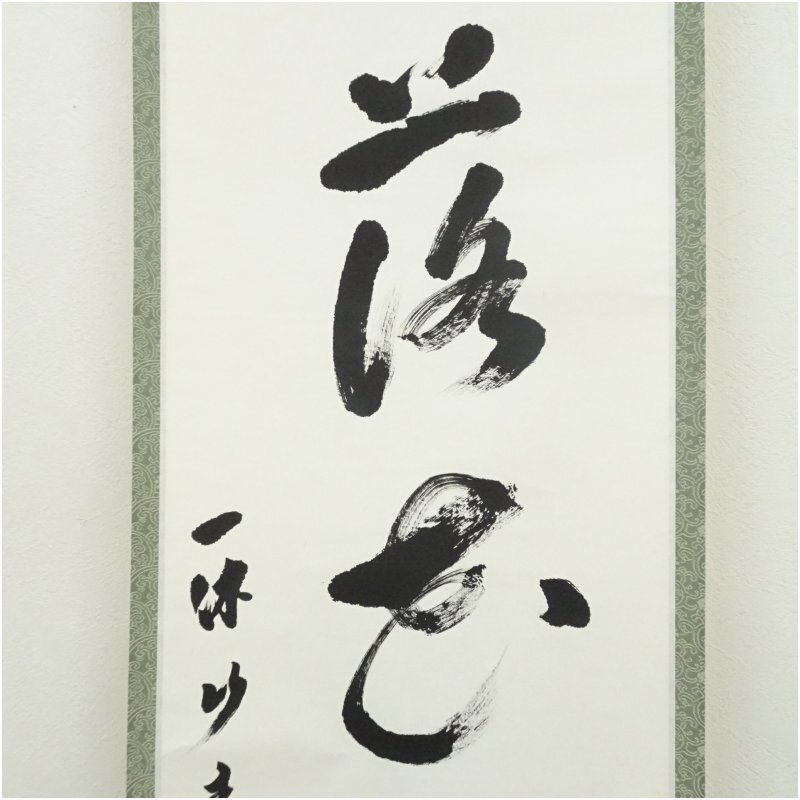 落花
一休